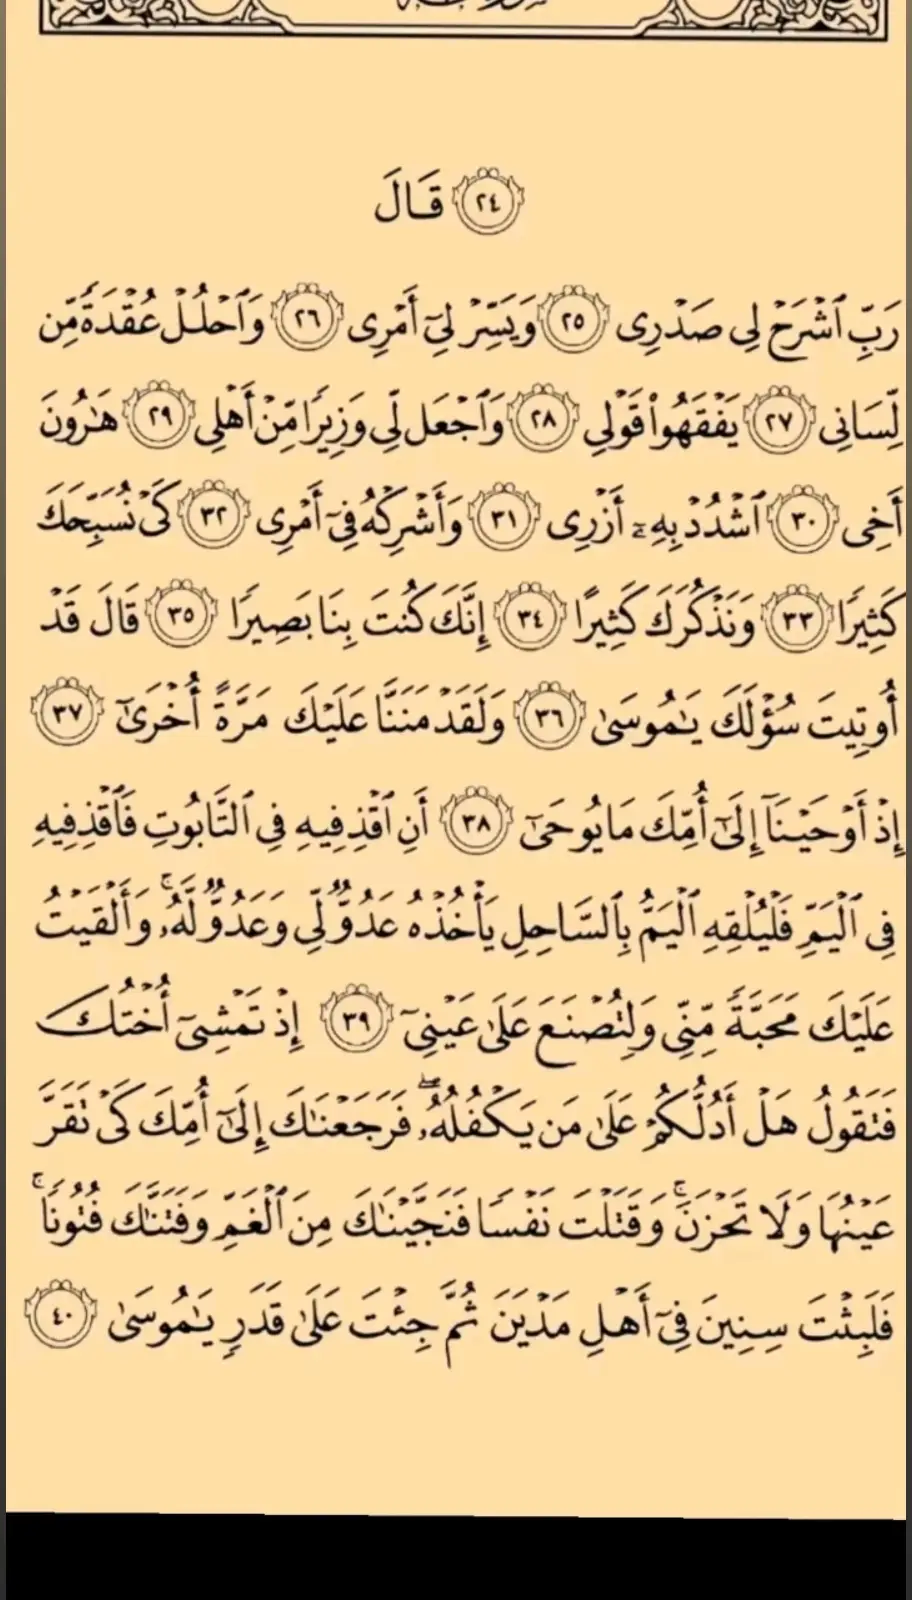 ٢٤ قَالَ
رَبِّ ٱشْرَحْ لِى صَدْرِى ٢٥ وَيَسِّرْ لِىٓ أَمْرِى ٢٦ وَٱحْلُلْ عُقْدَةً مِّن
لِّسَانِى ٢٧ يَفْقَهُوا۟ قَوْلِى ٢٨ وَٱجْعَل لِّى وَزِيرًا مِّنْ أَهْلِى ٢٩ هَـٰرُونَ
أَخِى ٣٠ ٱشْدُدْ بِهِۦٓ أَزْرِى ٣١ وَأَشْرِكْهُ فِىٓ أَمْرِى ٣٢ كَىْ نُسَبِّحَكَ
كَثِيرًا ٣٣ وَنَذْكُرَكَ كَثِيرًا ٣٤ إِنَّكَ كُنتَ بِنَا بَصِيرًا ٣٥ قَالَ قَدْ
أُوتِيتَ سُؤْلَكَ يَـٰمُوسَىٰ ٣٦ وَلَقَدْ مَنَنَّا عَلَيْكَ مَرَّةً أُخْرَىٰٓ ٣٧
إِذْ أَوْحَيْنَآ إِلَىٰٓ أُمِّكَ مَا يُوحَىٰٓ ٣٨ أَنِ ٱقْذِفِيهِ فِى ٱلتَّابُوتِ فَٱقْذِفِيهِ
فِى ٱلْيَمِّ فَلْيُلْقِهِ ٱلْيَمُّ بِٱلسَّاحِلِ يَأْخُذْهُ عَدُوٌّ لِّى وَعَدُوٌّ لَّهُۥ ۚ وَأَلْقَيْتُ
عَلَيْكَ مَحَبَّةً مِّنِّى وَلِتُصْنَعَ عَلَىٰ عَيْنِىٓ ٣٩ إِذْ تَمْشِىٓ أُخْتُكَ
فَتَقُولُ هَلْ أَدُلُّكُمْ عَلَىٰ مَن يَكْفُلُهُۥ ۖ فَرَجَعْنَـٰكَ إِلَىٰٓ أُمِّكَ كَىْ تَقَرَّ
عَيْنُهَا وَلَا تَحْزَنَ ۚ وَقَتَلْتَ نَفْسًا فَنَجَّيْنَـٰكَ مِنَ ٱلْغَمِّ وَفَتَنَّـٰكَ فُتُونًا ۚ
فَلَبِثْتَ سِنِينَ فِىٓ أَهْلِ مَدْيَنَ ثُمَّ جِئْتَ عَلَىٰ قَدَرٍ يَـٰمُوسَىٰ ٤٠